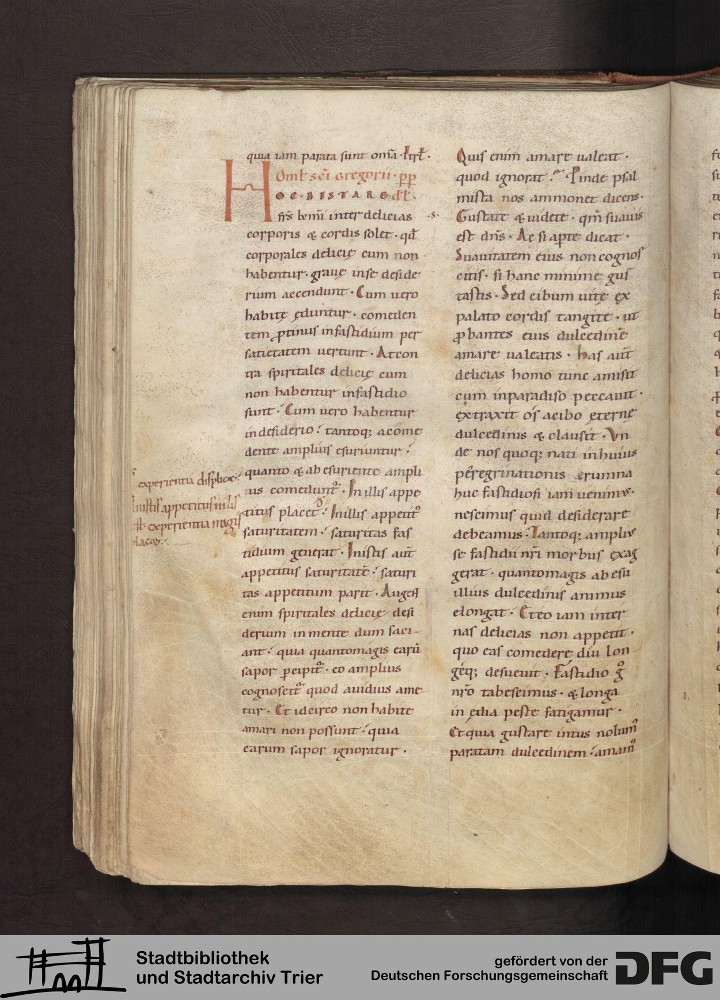 quia iam parata sunt om̅a · Irł ·
Omł sc̅i Gregorii · pp
HOC · DISTARE · dł ·
fr̅s km̅i inter delicias ·s·
corporis & cordis solet · qđ
corporales delicię cum non
habentur · graue inse deside
rium accendunt · Cum uero
habitę ęduntur · comeden
tem ꝓtinus infastidium per
satietatem uertunt · Atcon
tra spiritales delicię cum
non habentur infastidio
sunt · Cum uero habentur
indesiderio : tantoq; acome
dente amplius esuriuntur :
quanto & ab esuriente ampli
us comedunt᷑ · Inillis appe
titus placet : Inillis appetit᷑
saturitatem : saturitas fas
tidium generat · Inistis aut̅
appetitus saturitate̅ : saturi
tas appetitum parit · Augent
enim spiritales delicię desi
derium inmente dum saci
ant : quia quantomagis earu̅
sapor p̱cipit᷑ · eo amplius
cognoscit᷑ quod auidius ame
tur · Et idcirco non habitę
amari non possunt : quia
earum sapor ignoratur ·
experientia displice:
Inistis appetitus uilis
est experientia magis
placet:
Quis enim amare ualeat ·
quod ignorat : Proinde psal
mista nos ammonet dicens ·
Gustate & uidete · qm̅ suauis
est dn̅s · Ac si ap̱te dicat ·
Suauitatem eius non cognos
citis · si hanc minime gus
tastis · Sed cibum uitę ex
palato cordis tangite · ut
ꝓbantes eius dulcedine̅
amare ualeatis · Has aut̅
delicias homo tunc amisit
cum inparadiso peccauit ·
extraxit os acibo ęternę
dulcedinis & clausit · Vn
de nos quoq; nati inhuius
peregrinationis erumna
huc fastidiosi iam uenimus ·
nescimus quid desiderare
debeamus · Tantoq; amplius
se fastidii nr̅i morbus exag
gerat · quantomagis ab esu
illius dulcedinis animus
elongat · Et eo iam inter
nas delicias non appetit ·
quo eas comedere diu lon
geq; desueuit · Fastidio g̊
nr̅o tabescimus · & longa
in ędia peste fatigamur ·
Et quia gustare intus nolum᷒
paratam dulcedinem : amam᷒
Stadtbibliothek
und Stadtarchiv Trier
gefördert von der
Deutschen Forschungsgemeinschaft
DFG